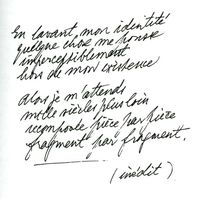 En lavant, mon identité
quelque chose me pousse
imperceptiblement
hors de mon existence
Alors je m'attends
mille siècles plus loin
recomposée pièce par pièce
fragment par fragment.
(inédit)